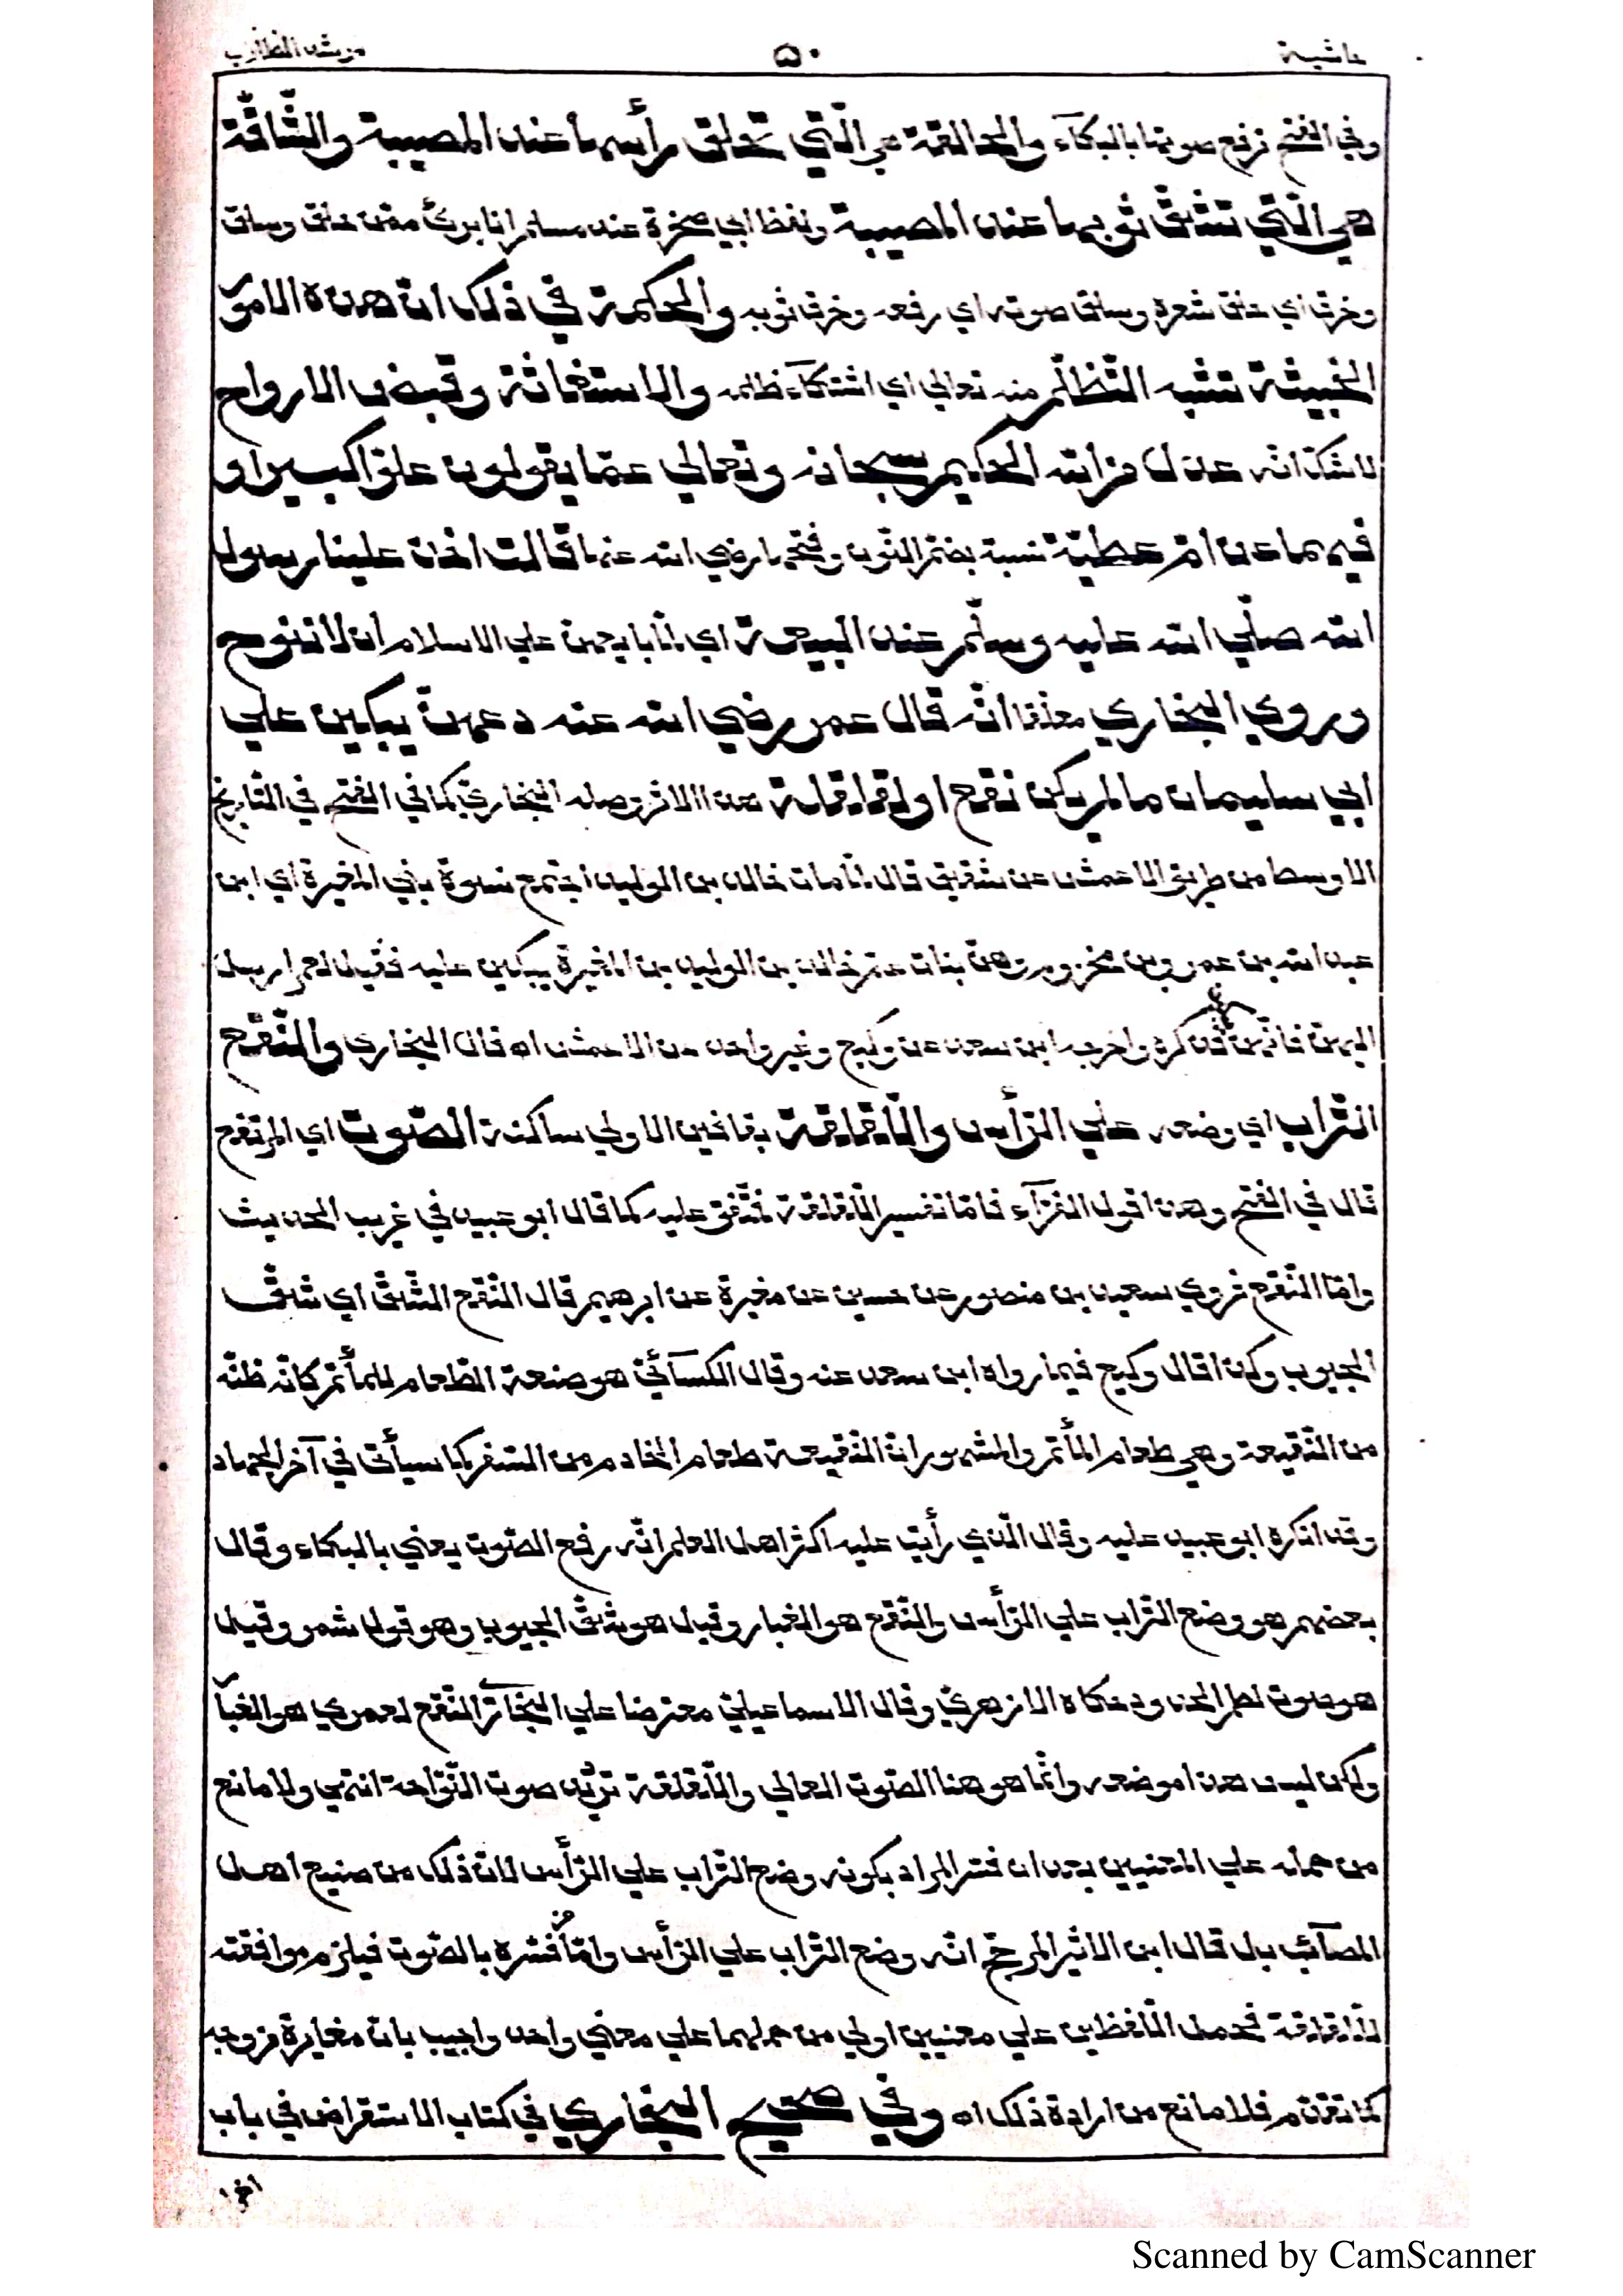 حاشية ٥٠ مرشد الطلاب
وفي الفتح ترفع صوتها بالبكآء والحالقة هي الّتي تحلق رأسها عند المصيبة والشّاقّة
هي الّتي تشقّ ثوبها عند المصيبة ولفظ ابي صخرة عند مسلم انا برئ ممّن حلق وسلق
وخرق اي حلق شعره وسلق صوته اي رفعه وخرق ثوبه والحكمة في ذلك انّ هذه الامور
الخبيثة تشبه التّظلّم منه تعالي اي اشتكآء ظلمه والاستغاثة وقبض الارواح
لاشكّ انّه عدل من الله الحكيم سبحانه وتعالي عمّا يقولون علوّا كبيرا و
فيهما عن امّ عطيّة نسيبة بضمّ النّون وفتحها رضي الله عنها قالت اخذ علينا رسول
الله صلّي الله عليه وسلّم عند البيعة اي لمّا بايعهنّ علي الاسلام ان لا ننوح
وروي البخاري معلّقا انّه قال عمر رضي الله عنه دعهنّ يبكين علي
ابي سليمان ما لم يكن نقع او لقلقلة هذا الاثر وصله البخاريّ كما في الفتح في التّاريخ
الاوسط من طريق الاعمش عن شقيق قال لمّا مات خالد بن الوليد اجتمع نسوة بني المغيرة اي ابن
عبد الله بن عمرو بن مخزوم وهنّ بنات عمّ خالد بن الوليد بن المغيرة يبكين عليه فقيل لعمر ارسل
اليهنّ فانههنّ فذكره واخرجه ابن سعد عن وكيع وغير واحد عن الاعمش اه قال البخاري والنّقع
التّراب اي وضعه علي الرّأس واللّقلقة بقافين الاولي ساكنة الصّوت اي المرتفع
قال في الفتح وهذا قول الفرّآء فامّا تفسير اللّقلقة فمتّفق عليه كما قال ابو عبيد في غريب الحديث
وامّا النّقع فروي سعيد بن منصور عن حسين عن مغيرة عن ابرهيم قال النّقع الشّقّ اي شقّ
الجيوب وكذا قال وكيع فيما رواه ابن سعد عنه وقال الكسآئيّ هو صنعة الطّعام للمأتم كانّه ظنّه
من النّقيعة وهي طعام المأتم والمشهور انّ النّقيعة طعام القادم من السّفر كما سيأتي في آخر الجهاد
وقد انكره ابو عبيد عليه وقال الّذي رأيت عليه اكثر اهل العلم انّه رفع الصّوت يعني بالبكاء وقال
بعضهم هو وضع التّراب علي الرّأس والنّقع هو الغبار وقيل هو شقّ الجيوب وهو قول شمر وقيل
هو صوت لطم الخدود حكاه الازهريّ وقال الاسماعيليّ معترضا علي البخاريّ النّقع لعمري هو الغبار
ولكن ليس هذا موضعه وانّما هو هنا الصّوت العالي واللّقلقة ترديد صوت النّوّاحة انتهي ولا مانع
من حمله علي المعنيين بعد ان فسّر المراد بكونه وضع التّراب علي الرّأس لانّ ذلك من صنيع اهل
المصآئب بل قال ابن الاثير المرجّح انّه وضع التّراب علي الرّأس وامّا من فسّره بالصّوت فيلزم موافقته
للّقلقة فحمل اللّفظين علي معنيين اولي من حملهما علي معني واحد واجيب بانّ مغايرة من وجه
كما تقدّم فلا مانع من ارادة ذلك اه وفي صحيح البخاري في كتاب الاستقراض في باب
Scanned by CamScanner